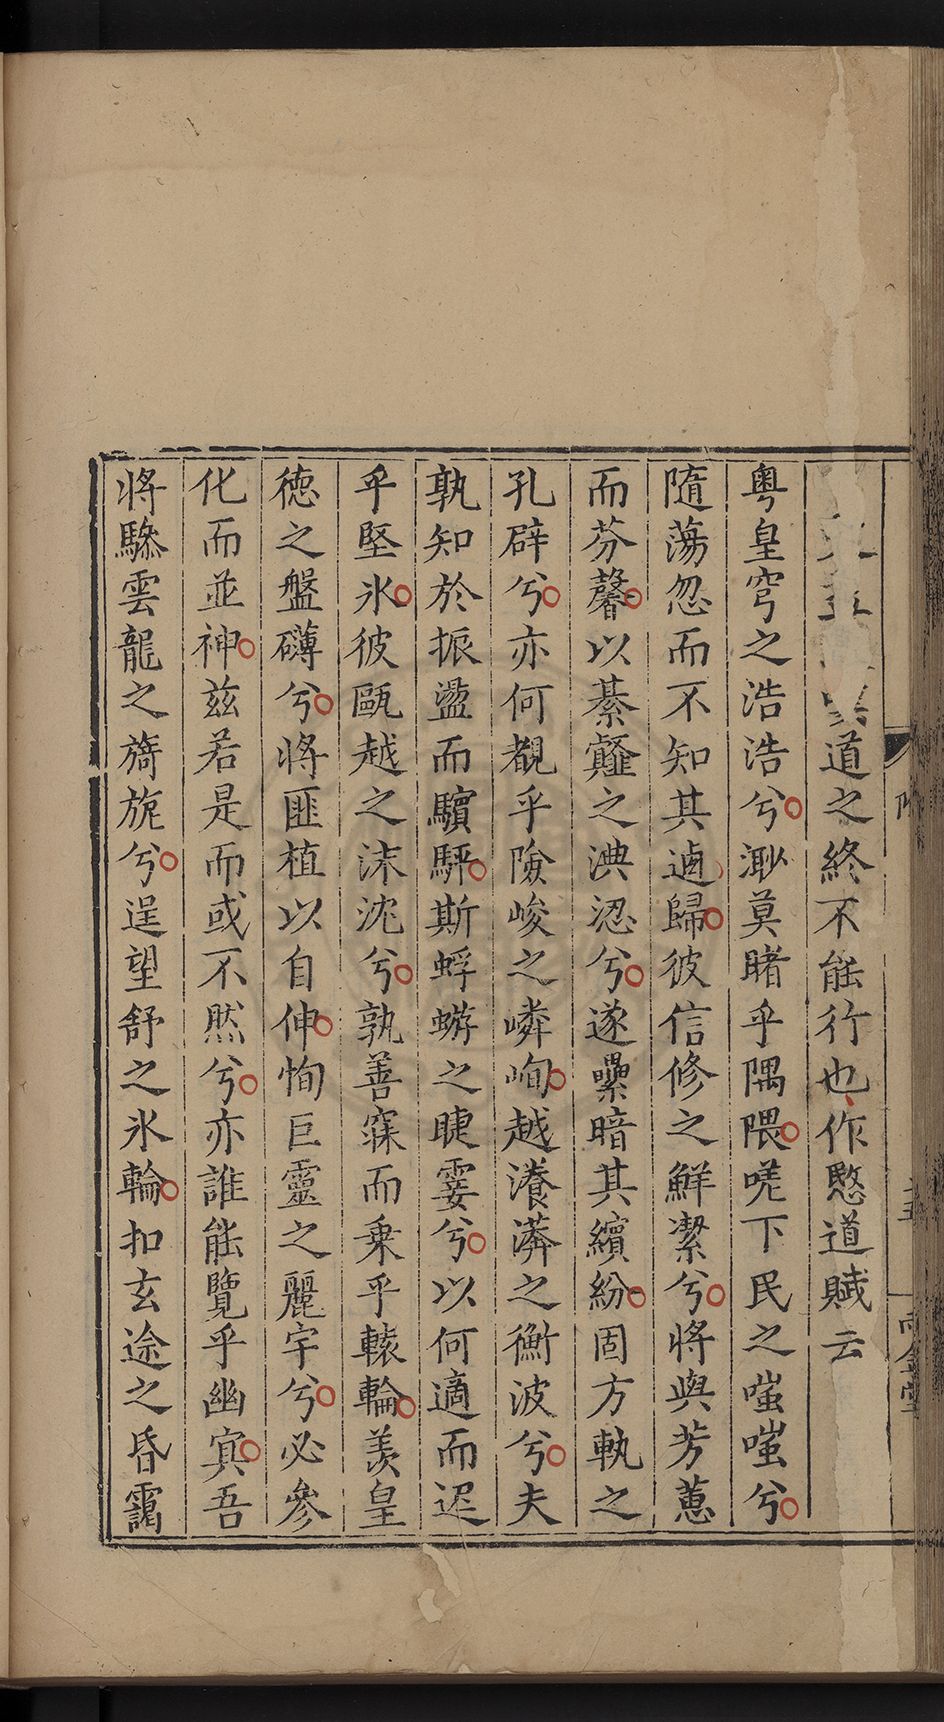 道之終不能行也作愍道賦云
粤皇穹之浩浩兮渺莫睹乎隅隈嗟下民之嗤嗤兮
隨蕩忽而不知其逌歸彼信修之鮮潔兮將與芳蕙
而芬馨以綦䨥之淟涊兮遂纍暗其繽紛固方軌之
孔辟兮亦何覩乎險峻之嶙峋越瀁漭之衝波兮夫
孰知於振盪而驞駍斯蜉蝣之睫霎兮以何適而迟
乎堅氷彼甌越之沫沈兮孰善寐而乗乎轅輪羨皇
徳之盤礴兮將匪植以自伸恂巨靈之麗宇兮必參
化而並神兹若是而或不然兮亦誰能覽乎幽寘吾
將驂雲龍之旖旎兮逞望舒之氷輪扣玄途之昏靄